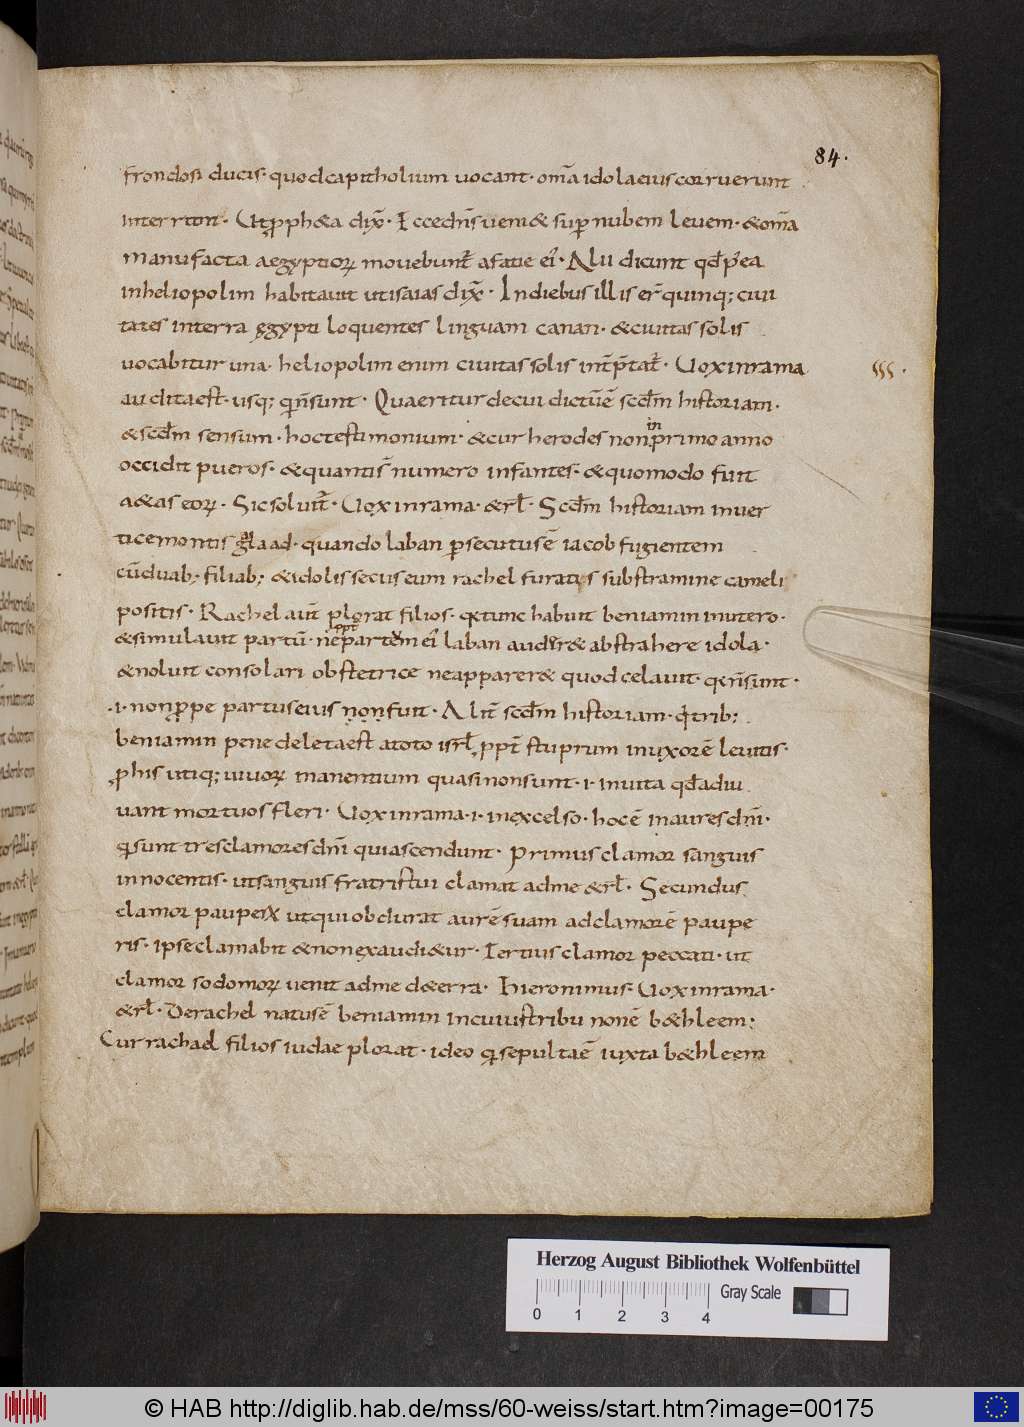 84.
frondosi ducis· quod capitholium uocant· om̄a idola eius corruerunt
in terram· Ut ꝓph&a dix̄· Ecce dn̄s ueni& sup nubem leuem· &om̄a
manufacta aegyptiorꝝ mouebunt̄ a facie ei᾿· Alii dicunt qđ p̄ ea
in heliopolim habitauit ut isaias dix̄· In diebus illis er̄ quinq; ciui
tates in terra ęgypti loquentes linguam canan· & ciuitas solis
uocabitur una· heliopolim enim ciuitas solis int̄p̄tat᾿· Uox in rama
audita est· usq; q n̄ sunt· Quaeritur de cui dictū ē scđm historiam·
& scđm sensum· hoc testimonium· & cur herodes non in primo anno
occidit pueros· & quantis numero infantes· & quomodo fuit
a&as eorꝝ· Sic soluit᾿· Uox in rama· &rł· Scđm historiam in uer
tice montis galaad· quando laban ꝑsecutus ē iacob fugientem
cū duab; filiab; & idolis secus eum rachel furatis sub stramine cameli
positis· Rachel aut̄ plorat filios· q &tunc habuit beniamin in utero·
& simulauit partū· ne ppt partem ei᾿ laban auder& abstrahere idola·
& noluit consolari obstetrice ne apparer& quod celauit· q n̄ sunt·
·i· non prope partus eius non fuit· Alit̄ scđm historiam· q trib;
beniamin pene deleta est a toto isrł ppt̄ stuprum in uxorē leuitis·
ꝓhis utiq; uiuorꝝ manentium quasi non sunt· i· inuita qđ adiu
uant mortuos fleri· Uox in rama· i· in excelso· hoc ē in aures dn̄i·
q sunt tres clamores dn̄i qui ascendunt· Primus clamor sanguis
innocentis· ut sanguis fratris tui clamat ad me &rł· Secundus
clamor pauperꝝ ut qui obdurat aurē suam ad clamorē paupe
ris· ipse clamabit & non exaudi&ur· Tertius clamor peccati· ut
clamor sodomorꝝ uenit ad me d&erra· Hieronimus· Uox in rama·
&rł· De rachel natus ē beniamin in cuius tribu non ē b&hleem;
Cur rachael filios iudae plorat· ideo q sepulta ē iuxta b&hleem
Herzog August Bibliothek Wolfenbüttel
Gray Scale
0 1 2 3 4
© HAB http://diglib.hab.de/mss/60-weiss/start.htm?image=00175